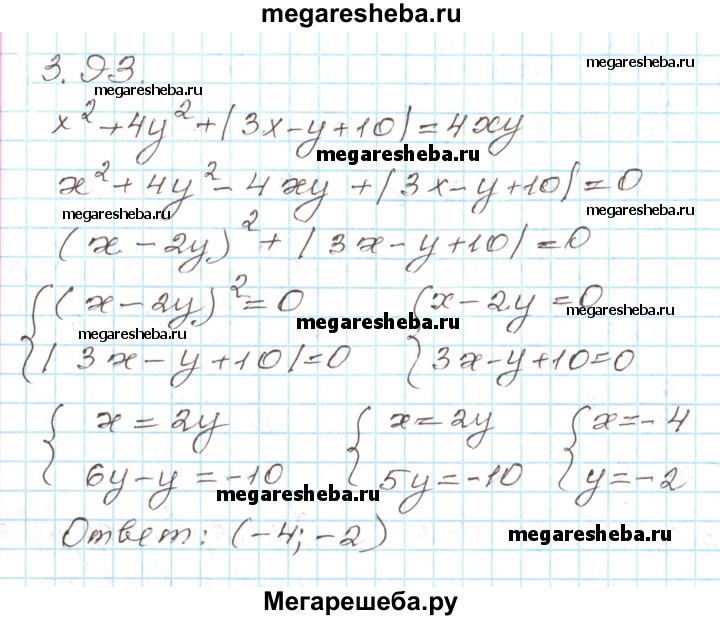 megaresheba.ru
3.93.
megaresheba.ru
megaresheba.ru
x² + 4y² + |3x - y + 10| = 4xy
megaresheba.ru
x² + 4y² - 4xy + |3x - y + 10| = 0
megaresheba.ru
megaresheba.ru
(x - 2y)² + |3x - y + 10| = 0
{(x - 2y)² = 0 {x - 2y = 0
megaresheba.ru
megaresheba.ru
megaresheba.ru
|3x - y + 10| = 0 3x - y + 10 = 0
{x = 2y {x = 2y {x = -4
6y - y = -10 5y = -10 y = -2
megaresheba.ru
Ответ: (-4; -2)
megaresheba.ru
Мегарешеба.ру